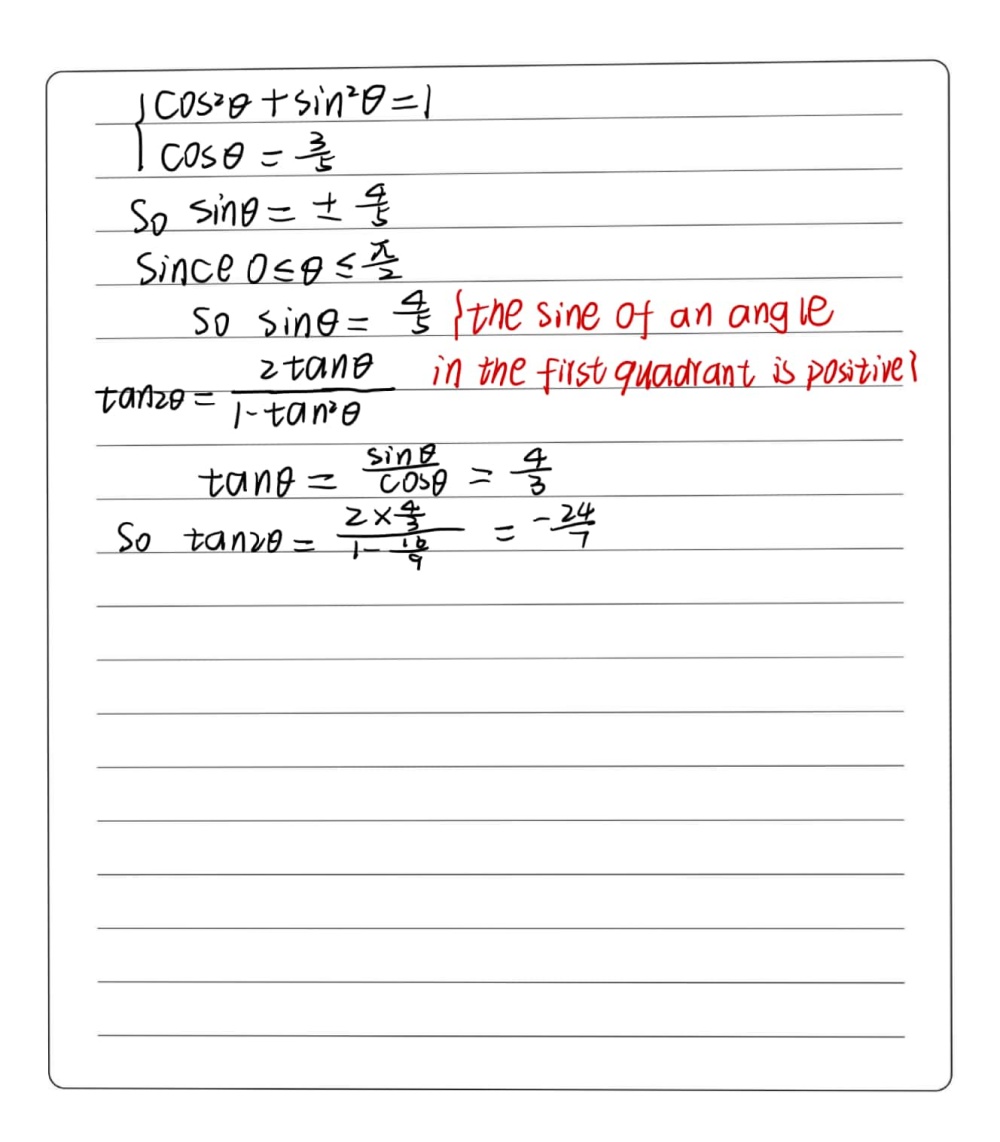 {cos²θ + sin²θ = 1
cosθ = 3/5
So sinθ = ± 4/5
Since 0 ≤ θ ≤ π/2
So sinθ = 4/5 {the sine of an angle
in the first quadrant is positive}
tan2θ = 2tanθ / 1 - tan²θ
tanθ = sinθ/cosθ = 4/3
So tan2θ = 2 × 4/3 / 1 - 16/9 = -24/7